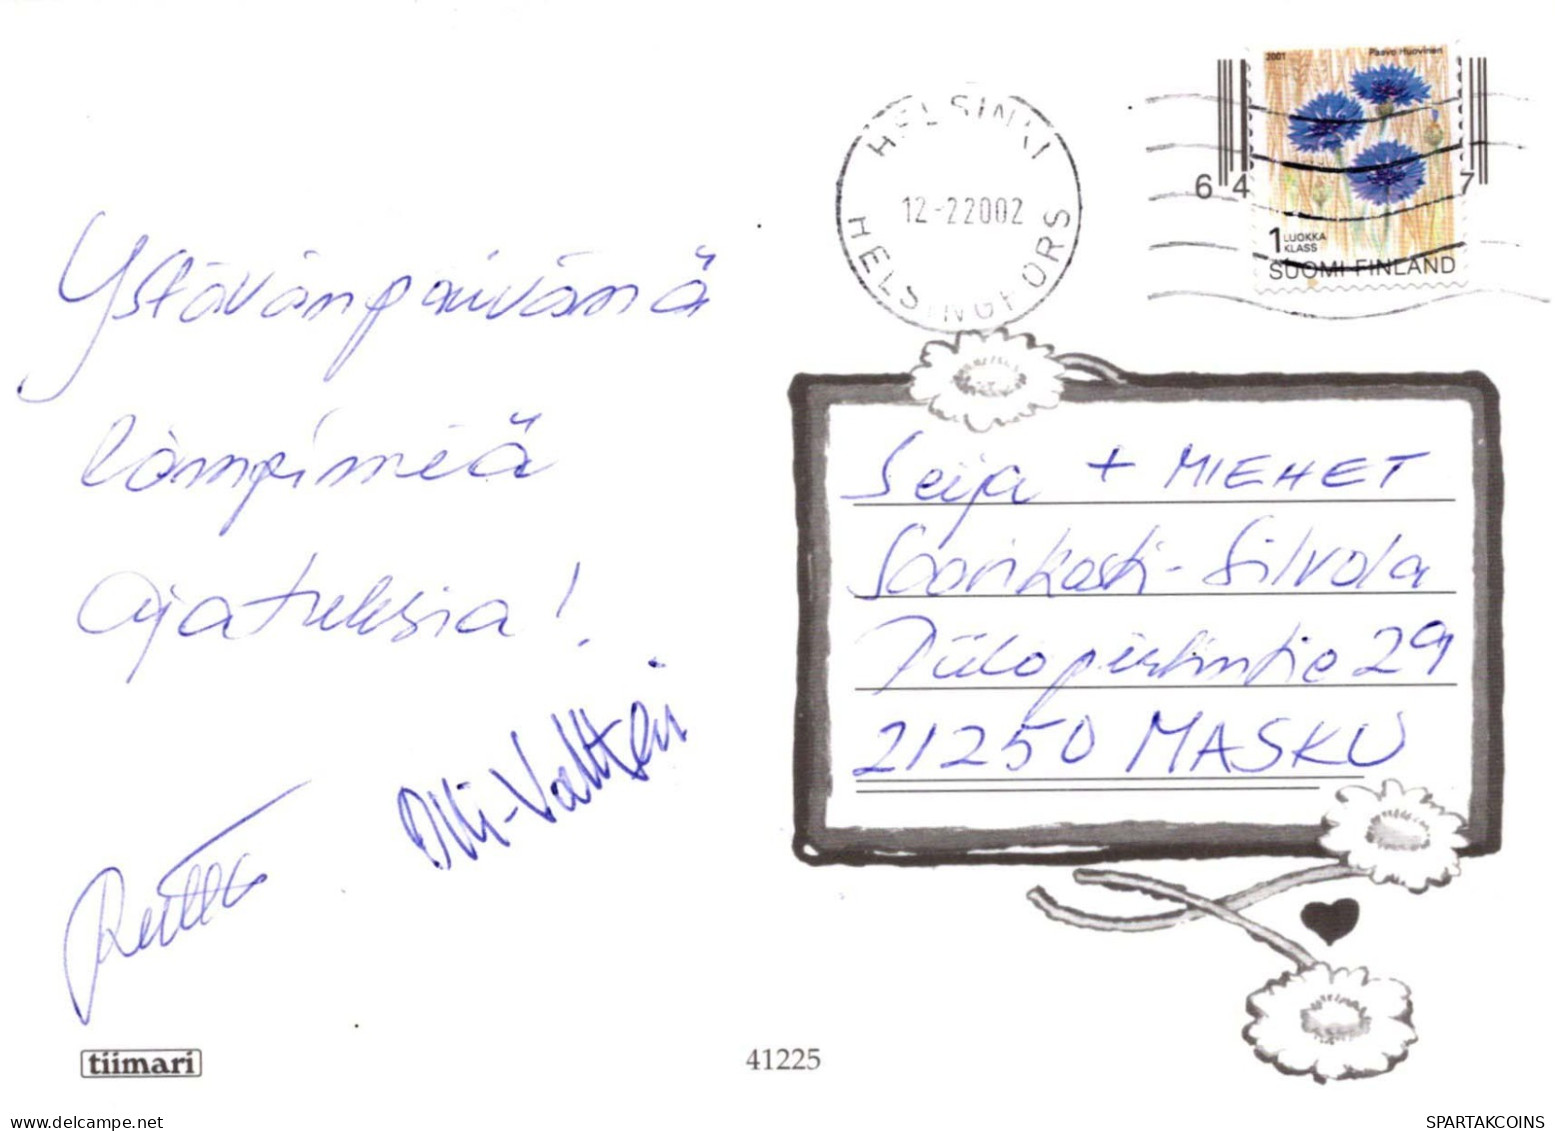 2001 Paavo Huovinen
HELSINKI
12-22002
HELSINGFORS
6 4 7
1 LUOKKA
KLASS
SUOMI FINLAND
Ystävänpäivänä
lämpimiä
ajatuksia!
Olli-Valtteri
Seija + MIEHET
Saarikoski-Silvola
Piilopirtintie 29
21250 MASKU
tiimari
41225
www.delcampe.net
SPARTAKCOINS